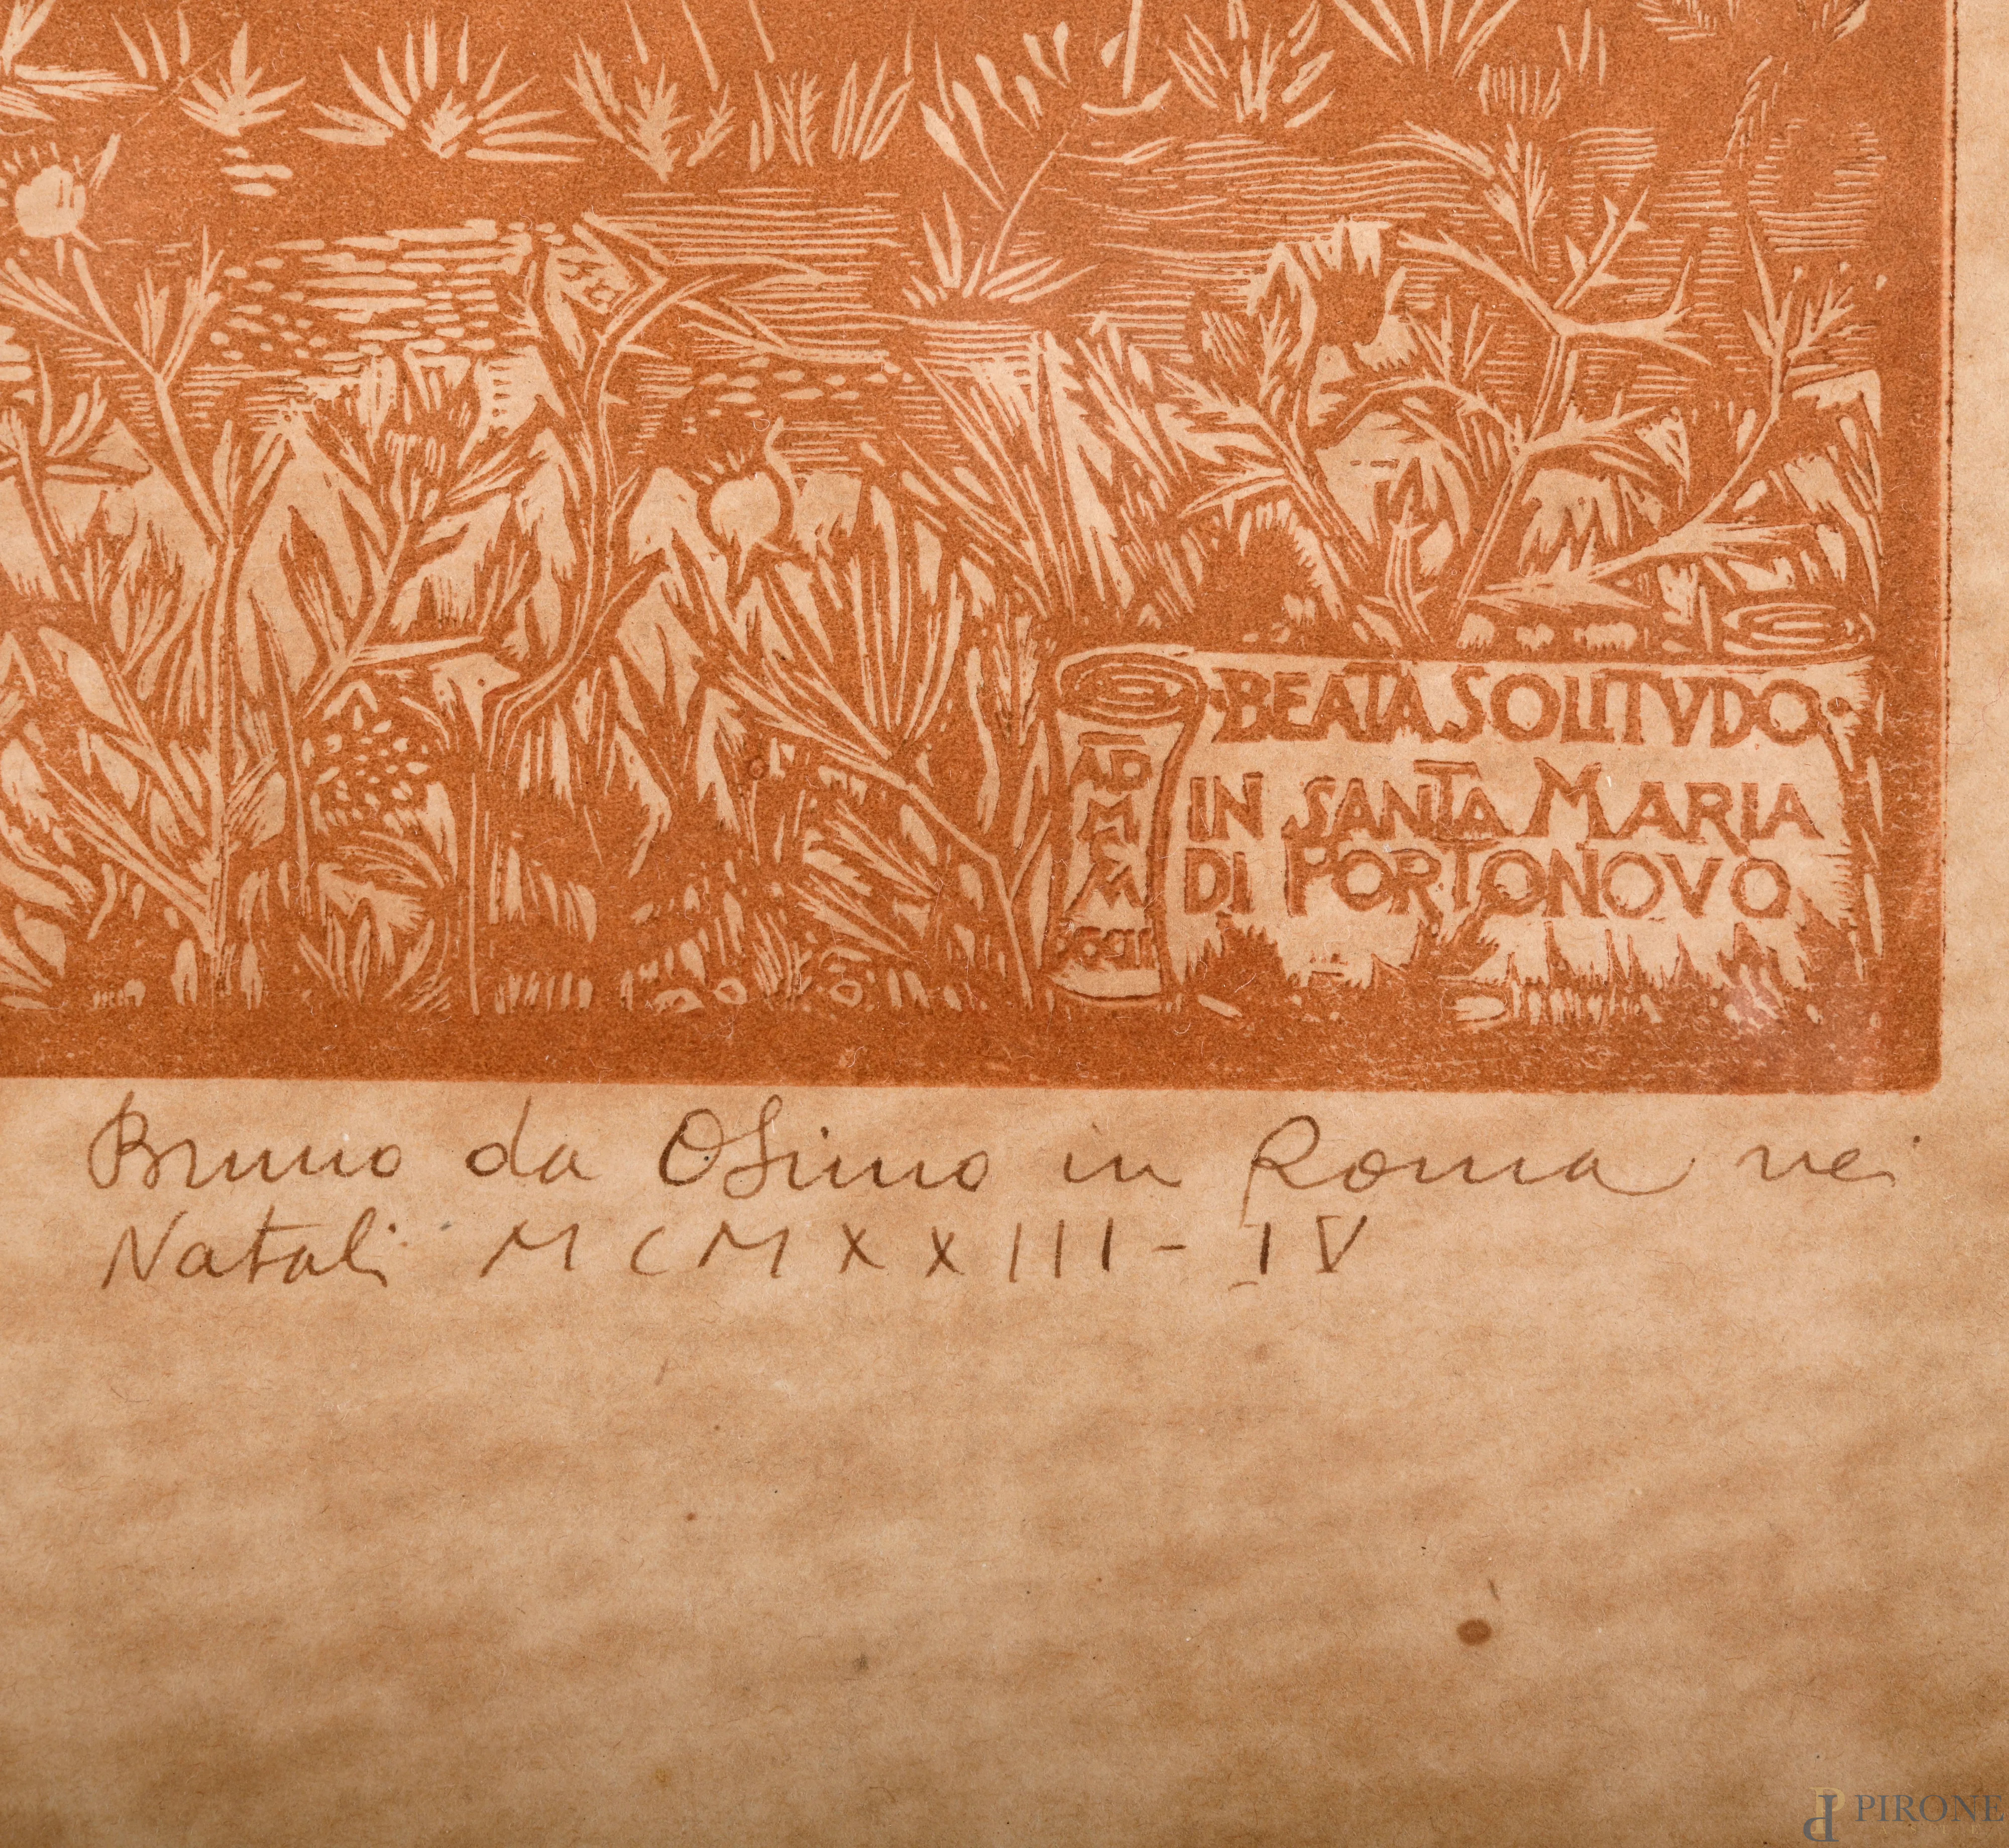 ·BEATA SOLITVDO·
IN SANTA MARIA
DI PORTONOVO
AD
M
Bruno da Osimo in Roma nei
Natali MCMXXIII-IV
PIRONE